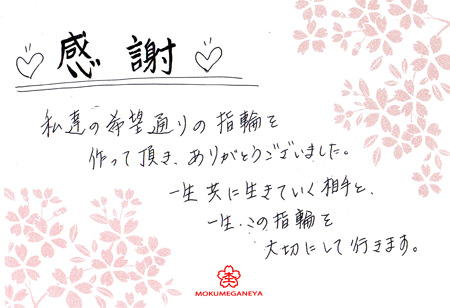 感謝
私達の希望通りの指輪を
作って頂き、ありがとうございました。
一生共に生きていく相手と、
一生、この指輪を
大切にして行きます。
MOKUMEGANEYA